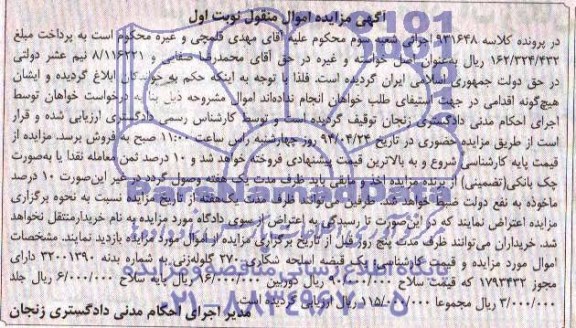 آگهی مزایده اموال منقول نوبت اول
در پرونده کلاسه ۹۳۱۶۴۸ اجرائی شعبه سوم محکوم علیه آقای مهدی قلمچی و غیره محکوم است به پرداخت مبلغ
۱۶۲/۳۲۴/۴۳۲ ریال به‌عنوان اصل خواسته و غیره در حق آقای محمدرضا صفایی و ۸/۱۱۶۲۲۱ نیم عشر دولتی
در حق دولت جمهوری اسلامی ایران گردیده است. فلذا با توجه به اینکه حکم به خواندگان ابلاغ گردیده و ایشان
هیچ‌گونه اقدامی در جهت استیفای طلب خواهان انجام نداده‌اند اموال مشروحه ذیل بنا به درخواست خواهان توسط
اجرای احکام مدنی دادگستری زنجان توقیف گردیده است و توسط کارشناس رسمی دادگستری ارزیابی شده و قرار
است از طریق مزایده حضوری در تاریخ ۹۴/۰۴/۲۴ روز چهارشنبه راس ساعت ۱۱:۰۰ صبح به فروش برسد. مزایده از
قیمت پایه کارشناسی شروع و به بالاترین قیمت پیشنهادی فروخته خواهد شد و ۱۰ درصد ثمن معامله نقدا یا به‌صورت
چک بانکی(تضمینی) از برنده مزایده اخذ و مابقی باید ظرف مدت یک‌هفته وصول گردد در غیر این‌صورت ۱۰ درصد
ماخوذه به نفع دولت ضبط خواهد شد. طرفین می‌توانند ظرف مدت یک‌هفته از تاریخ مزایده نسبت به نحوه برگزاری
مزایده اعتراض نمایند که در این‌صورت تا رسیدگی به اعتراض از سوی دادگاه مورد مزایده به نام خریدار منتقل نخواهد
شد. خریداران می‌توانند ظرف مدت پنج روز قبل از تاریخ برگزاری مزایده از اموال مورد مزایده بازدید نمایند. مشخصات
اموال مورد مزایده و قیمت کارشناسی: یک قبضه اسلحه شکاری ۲۷۰ گلوله‌زنی به شماره بدنه ۳۲۰۰۱۳۹۰ دارای
مجوز ۱۷۹۳۴۳۲ که قیمت سلاح ۹۰/۰۰۰/۰۰۰ ریال دوربین ۱۶/۰۰۰/۰۰۰ ریال پایه سلاح ۶/۰۰۰/۰۰۰ ریال جلد
۳/۰۰۰/۰۰۰ ریال مجموعا ۱۱۵/۰۰۰/۰۰۰ ریال ارزیابی گردیده است.
مدیر اجرای احکام مدنی دادگستری زنجان
ParsNamadData
پایگاه اطلاع رسانی مناقصه و مزایده
۰۲۱-۸۸۳۴۹۶۷۰-۵